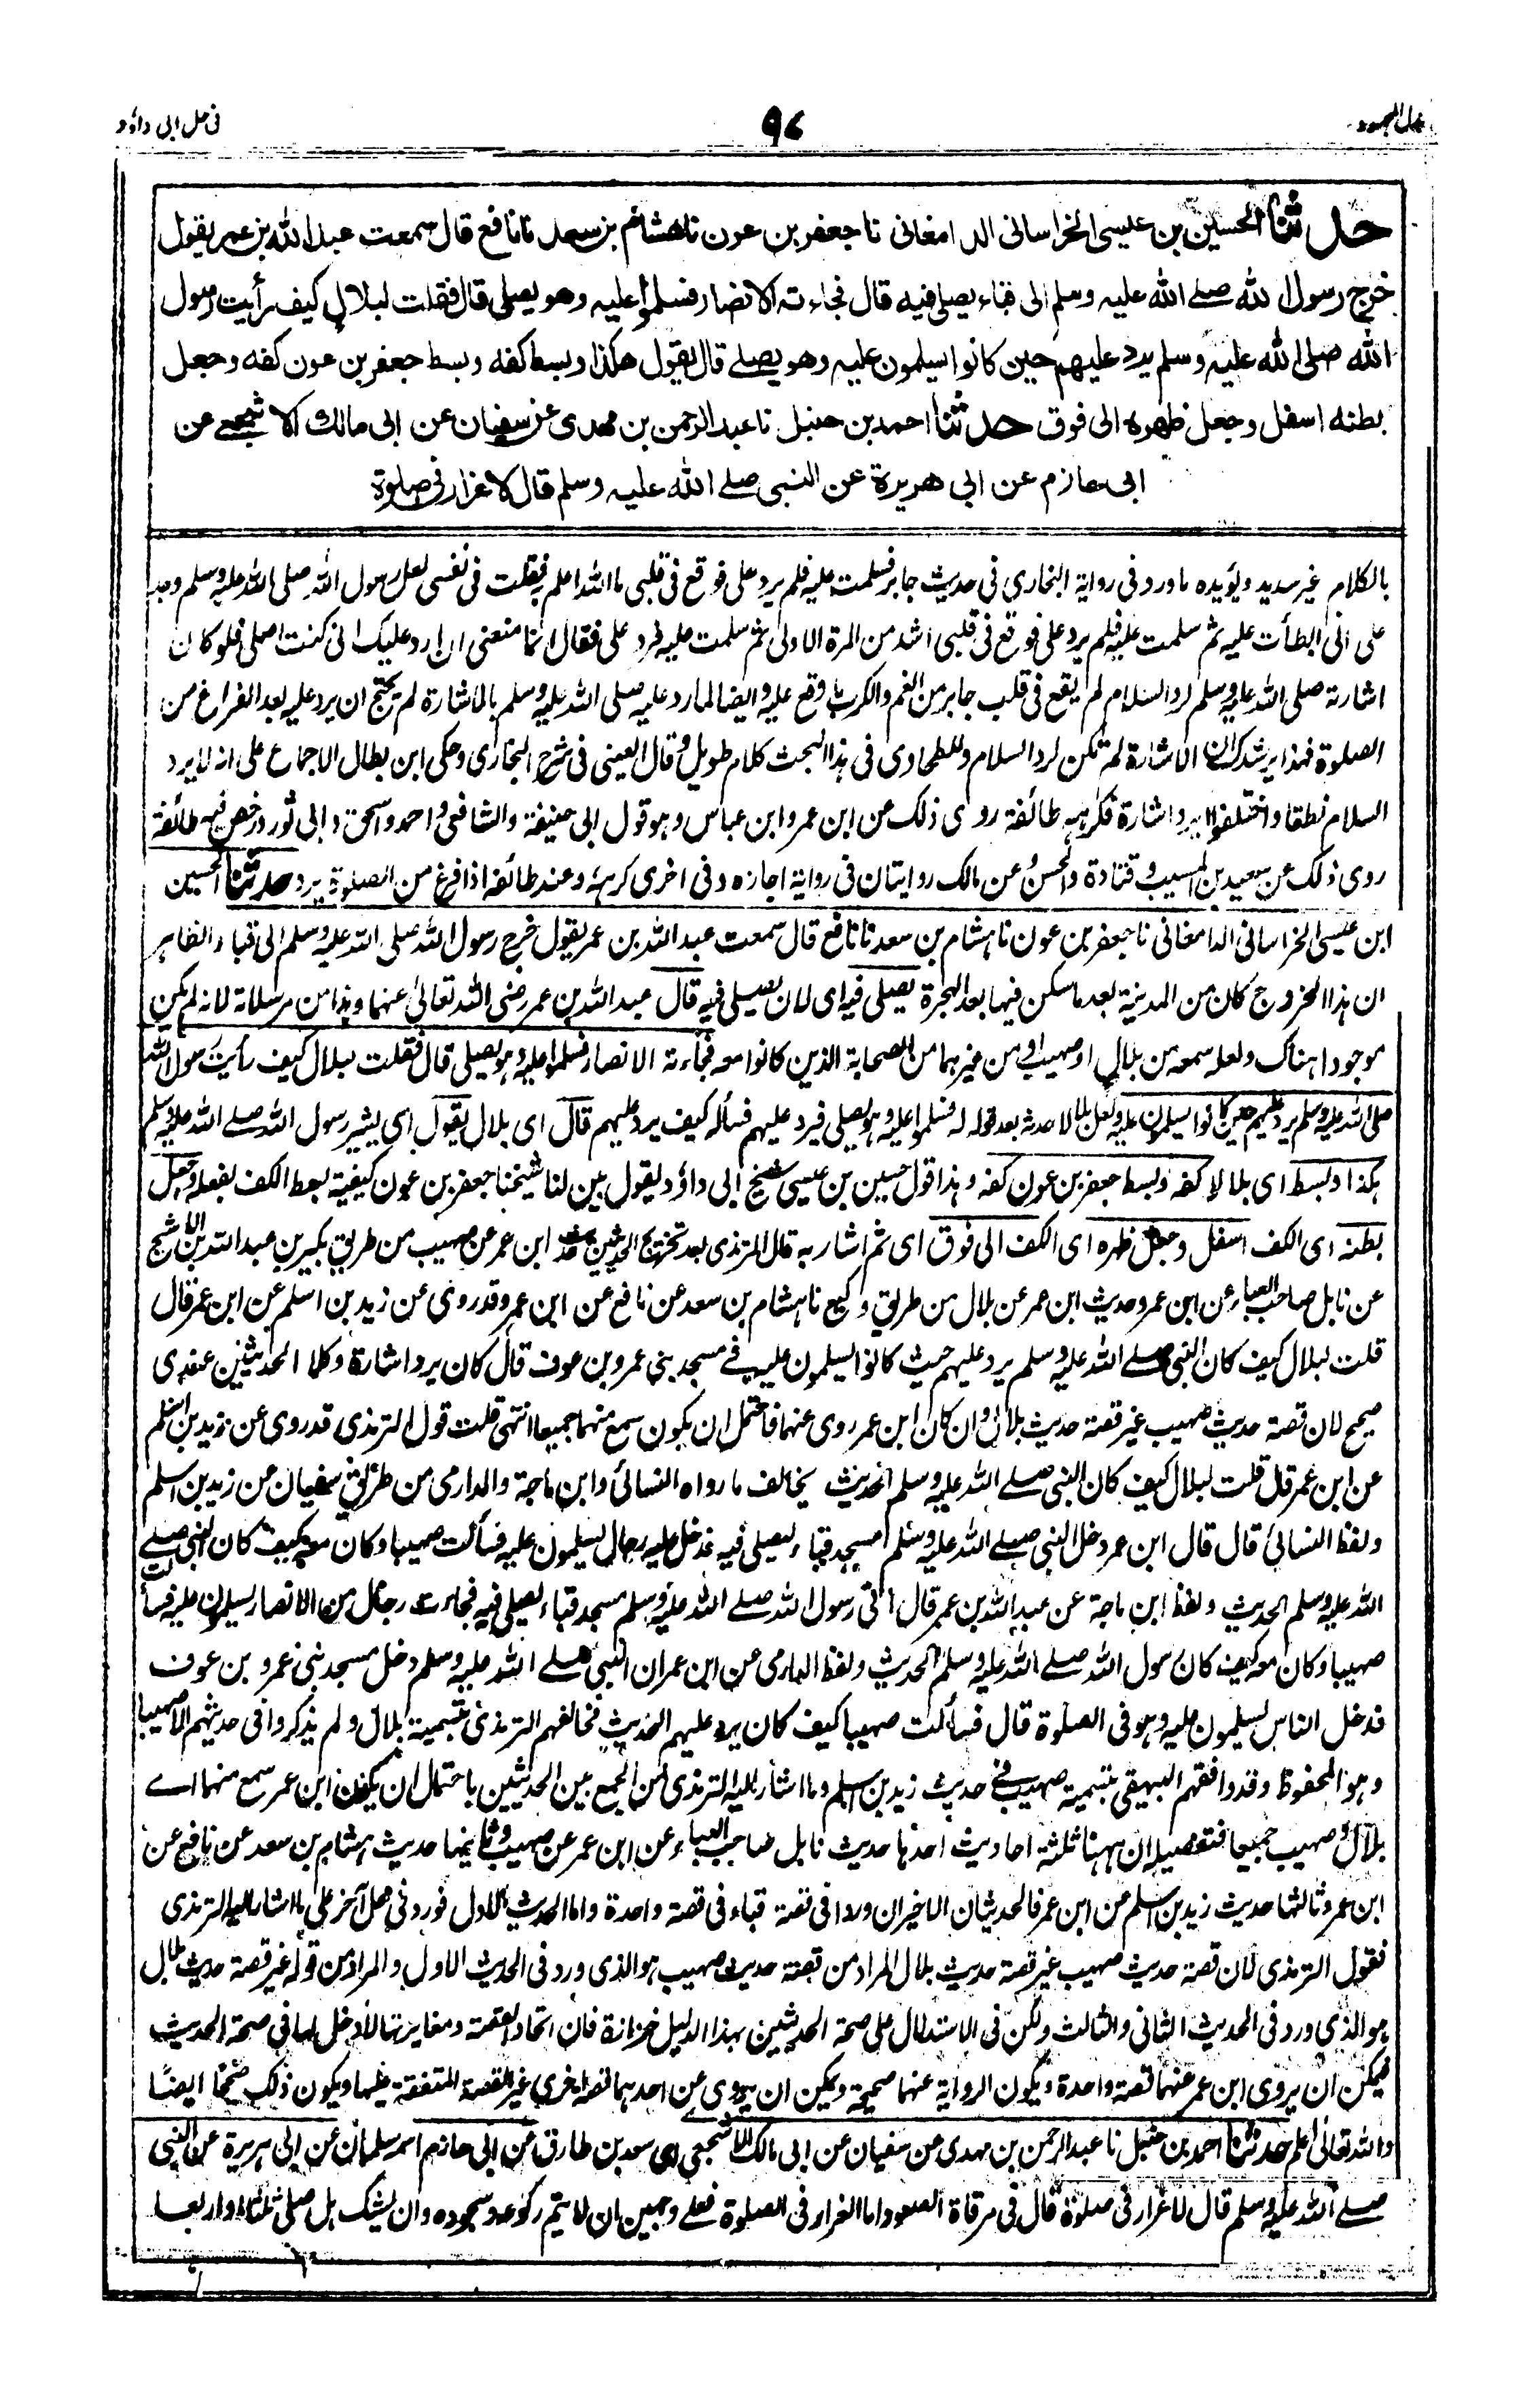 بذل المجهود
٩٧
في حل ابي داؤد
حدثنا الحسين بن عيسى الخراساني الدامغاني نا جعفر بن عون نا هشام بن سعد نا نافع قال سمعت عبد الله بن عمر يقول
خرج رسول الله صلے الله عليه وسلم الى قباء يصلي فيه قال فجاءته الانصار فسلموا عليه وهو يصلي قال فقلت لبلال كيف رأيت رسول
الله صلى الله عليه وسلم يرد عليهم حين كانوا يسلمون عليه وهو يصلے قال يقول هكذا وبسط كفه وبسط جعفر بن عون كفه وجعل
بطنه اسفل وجعل ظهره الى فوق حدثنا احمد بن حنبل نا عبد الرحمن بن مهدى عن سفيان عن ابى مالك الاشجعے عن
ابى حازم عن ابي هريرة عن النبى صلے الله عليه وسلم قال لا غرار فى صلوة
بالكلام غير سديد ويؤيده ما ورد فى رواية البخاري فى حديث جابر فسلمت عليه فلم يرد على فوقع فى قلبى ما الله اعلم به فقلت فى نفسى لعل رسول الله صلى الله عليه وسلم وجد
على انى ابطأت عليه ثم سلمت عليه فلم يرد على فوقع فى قلبى اشد من المرة الاولى ثم سلمت عليه فرد على فقال انما منعنى ان ارد عليك انى كنت اصلى فلو كان
اشارته صلى الله عليه وسلم لرد السلام لم يقع فى قلب جابر من الغم والكرب ما وقع عليه وايضا لما رد عليه صلى الله عليه وسلم بالاشارة لم يحتج ان يرد عليه بعد الفراغ من
الصلوة فهذا يرشدك ان الاشارة لم تكن لرد السلام وللطحاوى فى هذا البحث كلام طويل وقال العينى فى شرح البخارى وحكى ابن بطال الاجماع على انه لا يرد
السلام نطقا واختلفوا هل يرد اشارة فكرهه طائفة روى ذلك عن ابن عمر وابن عباس وهو قول ابى حنيفة والشافعى واحمد واسحق وابى ثور ورخص فيه طائفة
روى ذلك عن سعيد بن المسيب وقتادة والحسن وعن مالك روايتان فى رواية اجازه وفى اخرى كرهه وعند طائفة اذا فرغ من الصلوة يرد حدثنا الحسين
ابن عيسى الخراسانى الدامغانى نا جعفر بن عون نا هشام بن سعد نا نافع قال سمعت عبد الله بن عمر يقول خرج رسول الله صلى الله عليه وسلم الى قباء والظاهر
ان هذا الخروج كان من المدينة بعد ما سكن فيها بعد الهجرة يصلى فيه اى لان يصلى فيه قال عبد الله بن عمر رضى الله تعالى عنهما وهذا من مرسلاته لانه لم يكن
موجودا هناك ولعله سمعه من بلال او صهيب او من غيرهما من الصحابة الذين كانوا معه فجاءته الانصار فسلموا عليه وهو يصلى قال فقلت لبلال كيف رأيت رسول الله
صلى الله عليه وسلم يرد عليهم حين كانوا يسلمون عليه ولعل بلالا حدثه بعد قوله له فسلموا عليه وهو يصلى فيرد عليهم فسأله كيف يرد عليهم قال اى بلال يقول اى يشير رسول الله صلے الله عليه وسلم
هكذا وبسط اى بلالا كفه وبسط جعفر بن عون كفه وهذا قول حسين بن عيسى شيخ ابى داؤد يقول بين لنا شيخنا جعفر بن عون كيفية بسط الكف بفعله وجعل
بطنه اى الكف اسفل وجعل ظهره اى الكف الى فوق اى ثم اشار به قال الترمذى بعد تخريج الحديثين حديث ابن عمر عن صهيب من طريق بكير بن عبد الله بن الاشج
عن نابل صاحب العباء عن ابن عمر وحديث ابن عمر عن بلال من طريق وكيع نا هشام بن سعد عن نافع عن ابن عمر وقد روى عن زيد بن اسلم عن ابن عمر قال
قلت لبلال كيف كان النبى صلے الله عليه وسلم يرد عليهم حيث كانوا يسلمون عليه فے مسجد بنى عمرو بن عوف قال كان يرد اشارة وكلا الحديثين عندى
صحيح لان قصة حديث صهيب غير قصة حديث بلال وان كان ابن عمر روى عنهما فاحتمل ان يكون سمع منهما جميعا انتهى قلت قول الترمذى قد روى عن زيد بن اسلم
عن ابن عمر قال قلت لبلال كيف كان النبى صلے الله عليه وسلم الحديث يخالف ما رواه النسائى وابن ماجة والدارمى من طريق سفيان عن زيد بن اسلم
ولفظ النسائى قال قال ابن عمر دخل النبى صلے الله عليه وسلم مسجد قباء ليصلى فيه فدخل عليه رجال يسلمون عليه فسألت صهيبا وكان معه كيف كان النبى صلے
الله عليه وسلم الحديث ولفظ ابن ماجة عن عبد الله بن عمر قال اتى رسول الله صلے الله عليه وسلم مسجد قباء يصلى فيه فجاءت رجال من الانصار يسلمون عليه فسألت
صهيبا وكان معه كيف كان رسول الله صلے الله عليه وسلم الحديث ولفظ الدارمى عن ابن عمر ان النبى صلے الله عليه وسلم دخل مسجد بنى عمرو بن عوف
فدخل الناس يسلمون عليه وهو فى الصلوة قال فسألت صهيبا كيف كان يرد عليهم الحديث فخالفهم الترمذى بتسمية بلال ولم يذكروا فى حديثهم الا صهيبا
وهو المحفوظ وقد وافقهم البيهقى بتسمية صهيب فے حديث زيد بن اسلم وما اشار اليه الترمذى من الجمع بين الحديثين باحتمال ان يكون ابن عمر سمع منهما اے
بلال وصهيب جميعا فتفصيله ان ههنا ثلثة احاديث احدها حديث نابل صاحب العباء عن ابن عمر عن صهيب وثانيها حديث هشام بن سعد عن نافع عن
ابن عمر وثالثها حديث زيد بن اسلم عن ابن عمر فالحديثان الاخيران وردا فى قصة قباء فى قصة واحدة واما الحديث الاول فورد فى محل آخر على ما اشار اليه الترمذى
فقول الترمذى لان قصة حديث صهيب غير قصة حديث بلال المراد من قصة حديث صهيب هو الذى ورد فى الحديث الاول والمراد من قوله غير قصة حديث بلال
هو الذى ورد فى الحديث الثانى والثالث ولكن فى الاستدلال على صحة الحديثين بهذا الدليل حزازة فان اتحاد القصة ومغايرتها لا دخل لها فى صحة الحديث
فيمكن ان يروى ابن عمر عنهما قصة واحدة ويكون الرواية عنهما صحيحة ويمكن ان يروى عن احدهما قصة اخرى غير القصة المتفقة عليها ويكون ذلك صحيحا ايضا
والله تعالى اعلم حدثنا احمد بن حنبل نا عبد الرحمن بن مهدى عن سفيان عن ابى مالك الاشجعى اى سعد بن طارق عن ابى حازم اسمه سلمان عن ابى هريرة عن النبى
صلے الله عليه وسلم قال لا غرار فى صلوة قال فى مرقاة الصعود اما الغرار فى الصلوة فعلے وجهين ان لا يتم ركوعه وسجوده وان يشك هل صلى ثلثا او اربعا